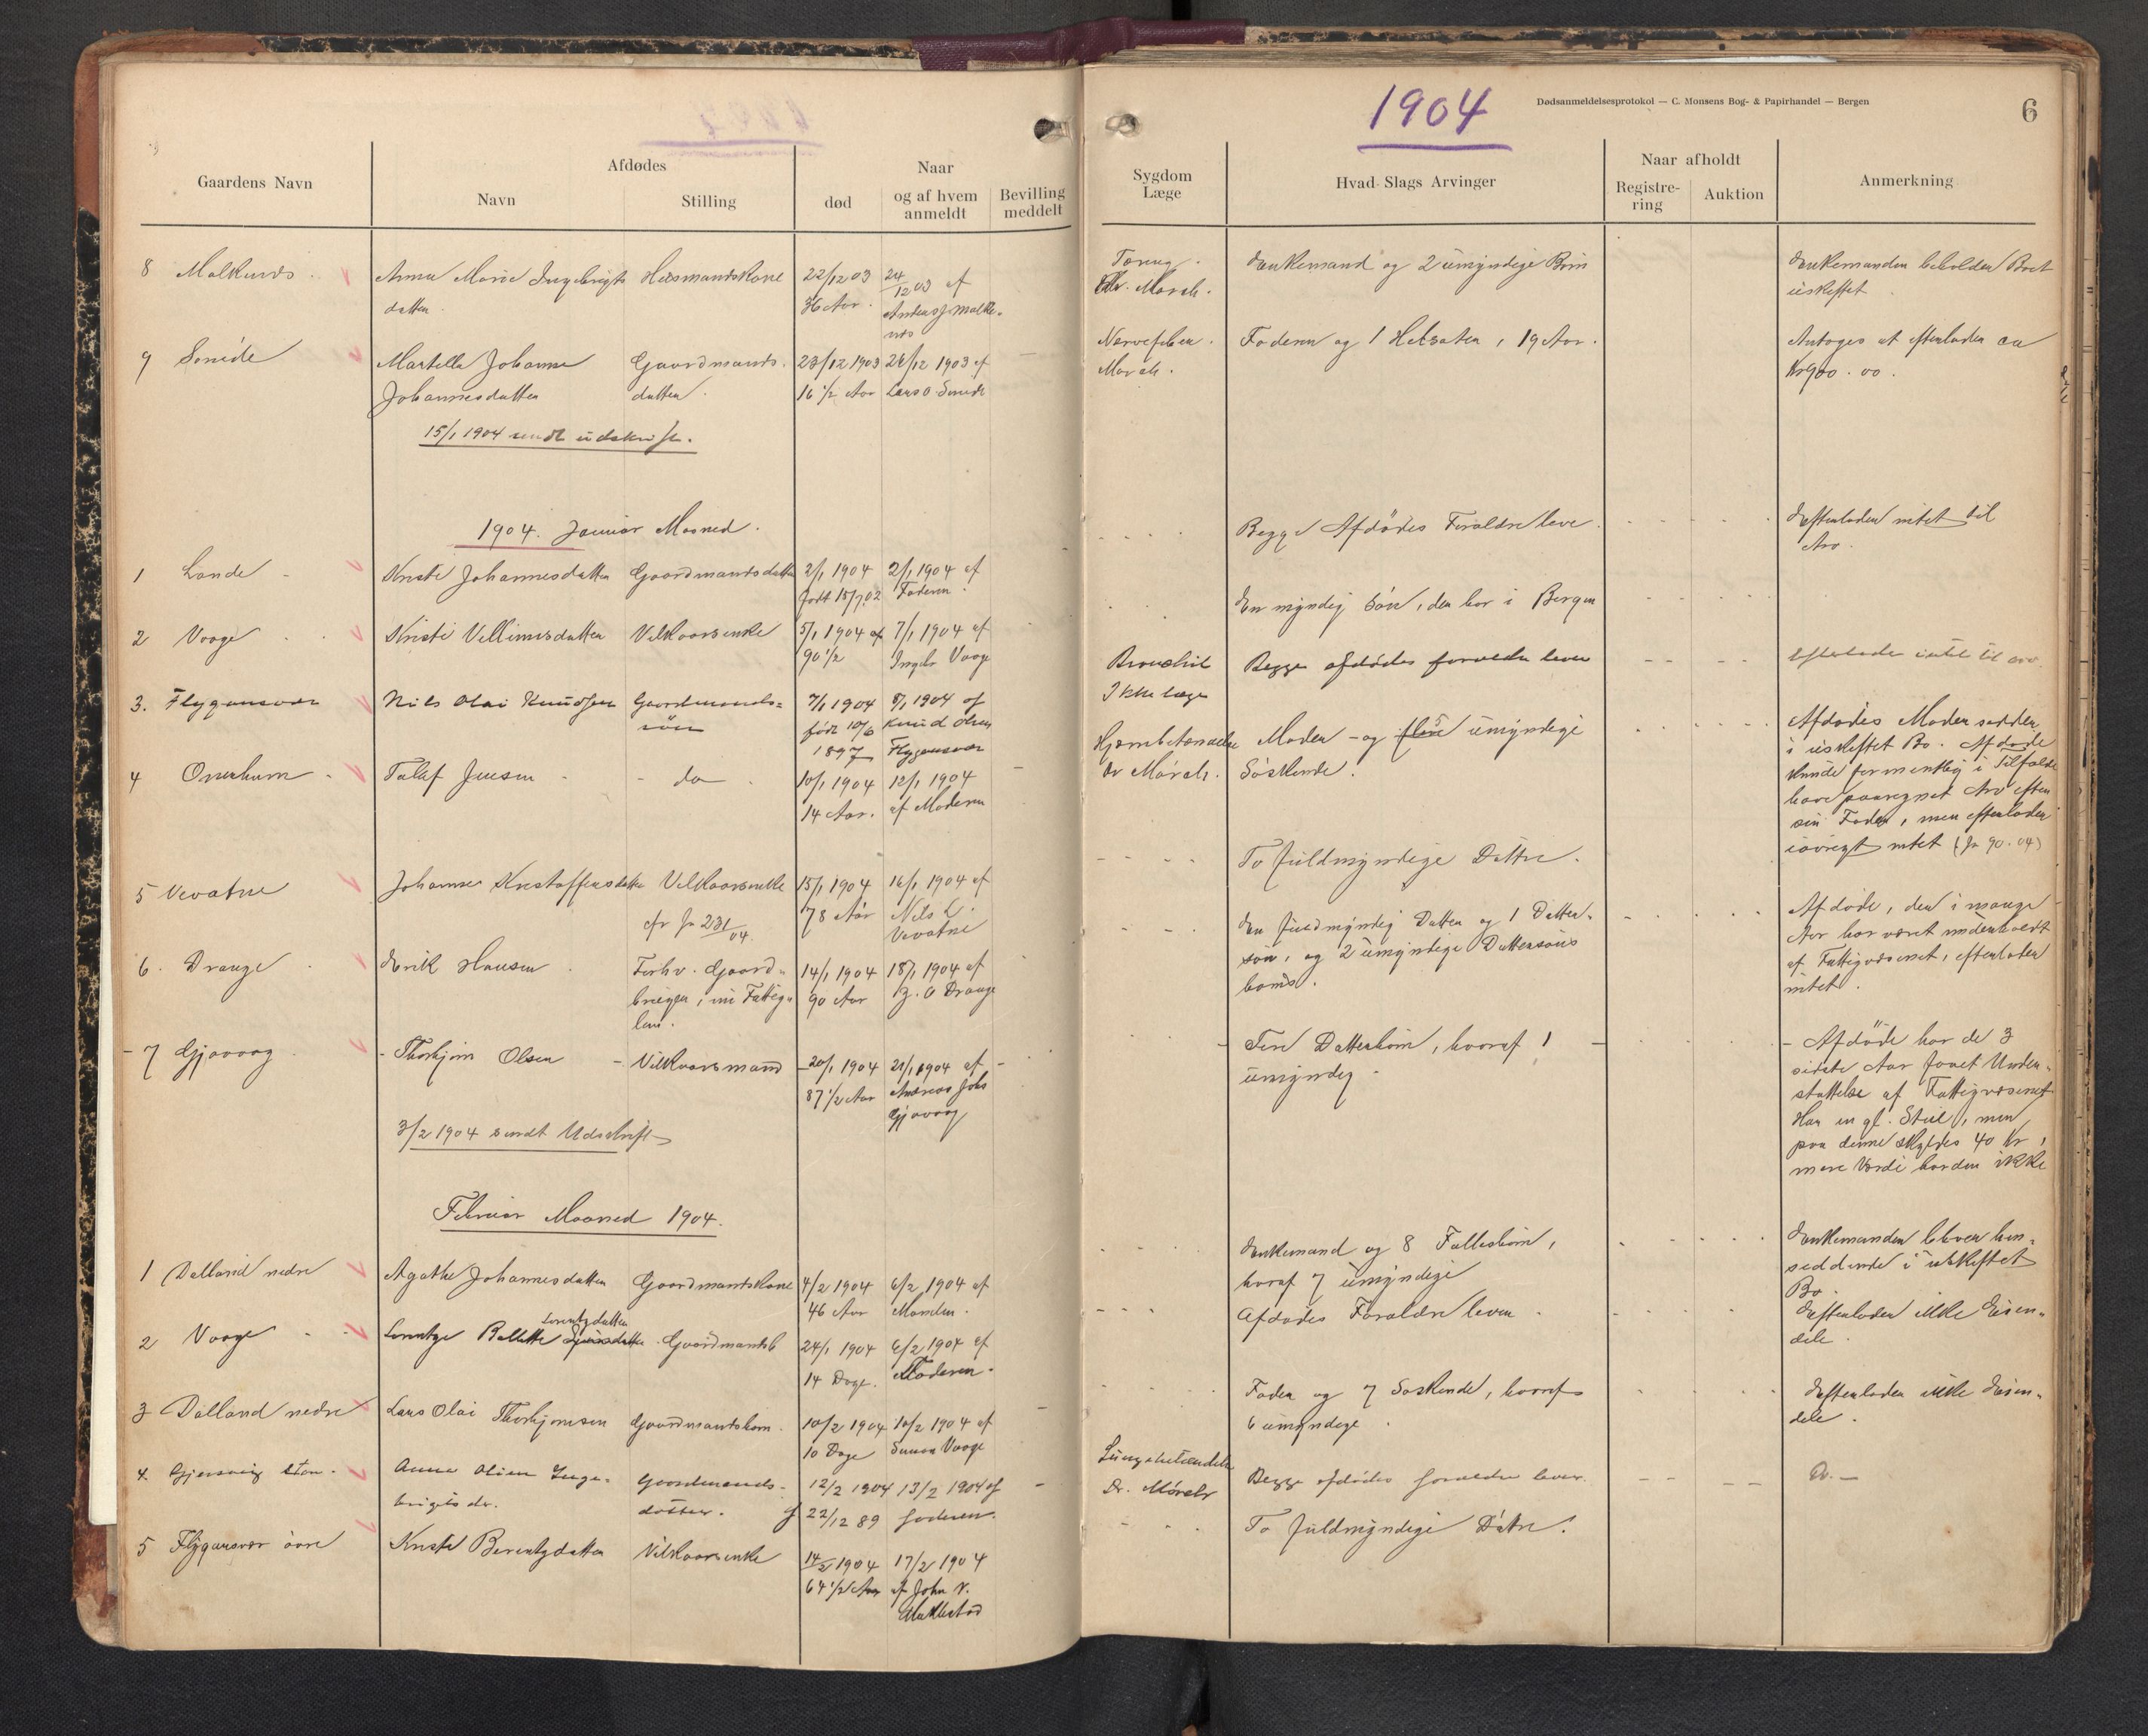 1904
Dødsanmeldelsesprotokol — C. Monsens Bog- & Papirhandel — Bergen
6
Gaardens Navn
Afdødes
Navn
Stilling
død
Naar
og af hvem
anmeldt
Bevilling
meddelt
Sygdom
Læge
Hvad Slags Arvinger
Naar afholdt
Registre-
ring
Auktion
Anmerkning
8 Malkenes
Anna Marie Ingebrigts
datter
Husmandskone
22/12 03
36 Aar
24/12 03 af
Tæring
Dr. Morch.
Enkemand og 2 umyndige Børn
Enkemanden beholder Boet
uskiftet
9 Smide
Martella Johanne
Johannesdatter
Gaardmands
datter
23/12 1903
16 1/2 Aar
26/12 1903 af
Lars O. Smide
Nervefeber.
Morch.
Faderen og 1 Helsøster, 19 Aar.
Antages at efterlader ca
Kr 900.00.
15/1 1904 sendt udskrift.
1904. Januar Maaned.
1 Lande
Kristi Johannesdatter
Gaardmandsdatter
2/1 1904
født 15/7 02
2/1 1904 af
Faderen.
Begge Afdødes Forældre leve.
Efterlader intet til
Arv.
2 Vaage
Kristi Vellumsdatter
Vilkaarsenke
5/1 1904
90 1/2
7/1 1904 af
Ingebr Vaage
En myndig Søn, der bor i Bergen
efterlader intet til arv.
3. Flygansvær
Nils Olai Knudsen
Gaardmands=
søn
7/1 1904
født 10/6
1897
8/1 1904 af
Knud Olsen
Flygansvær
Bronchit
Ikke læge
Begge afdødes forældre lever
4 Omrehum
Tolef Jensen
do
10/1 1904
14 Aar.
12/1 1904
af Moderen
Hjernebetændelse
Dr Mörch.
Moder - og 5 umyndige
Søskende.
Afdødes Moder sidder
i uskiftet Bo. Afdøde
kunde formentlig i Tilfælde
have paaregnet Arv efter
sin Fader, men efterlader
iøvrigt intet (Jr 90.04)
5 Vevatne
Johanne Kristoffersdatter
Vilkaarsenke
cfr Jr 231/04.
15/1 1904
78 Aar
16/1 1904 af
Nils L.
Vevatne
To fuldmyndige Døttre.
6. Drange
Erik Hansen
Forhv. Gaard=
bruger, nu Fattig=
lem.
14/1 1904
90 Aar
18/1 1904 af
B. O Drange
En fuldmyndig Datter og 1 Datter=
søn, og 2 umyndige Dattersøns
børn.
Afdøde, der i mange
Aar har været underholdt
af Fattigvæsenet, efterlader
intet.
7 Gjøvaag
Thorbjørn Olsen
Vilkaarsmand
20/1 1904
87 1/2 Aar
21/1 1904 af
Andreas Johs
Gjøvaag
Fire Datterbørn, hvoraf 1
umyndig
Afdøde har de 3
sidste Aar faaet Under=
støttelse af Fattigvæsenet
Har en gl. Stue, men
paa denne skyldes 40 Kr,
mere Værdi har den ikke
3/2 1904 sendt Udskrift
Februar Maaned 1904.
1 Dalland nedre
Agathe Johannesdatter
Gaardmandskone
4/2 1904
46 Aar
6/2 1904 af
Manden.
Enkemand og 8 Fællesbørn,
hvoraf 7 umyndige
Enkemanden bliver hen=
siddende i uskiftet
Bo.
2 Vaage
Lorentzdatter
Lorentze Bolette
Gaardmandsb
24/1 1904
14 Dage.
6/2 1904 af
Moderen.
Afdødes Forældre lever
Efterlader ikke Eien=
dele.
3 Dalland nedre
Lars Olai Thorbjørnsen
Gaardmandsbarn.
10/2 1904
10 Dage
10/2 1904 af
Simon Vaage
Fader og 7 Søskende, hvoraf
6 umyndige
Efterlader ikke Eien=
dele.
4.
Anna Oline Inge=
brigtsdr.
Gaardmands-
datter.
12/2 1904
f 22/12 89
13/2 1904 af
faderen.
Lungebetændelse
Dr. Mörch
Begge afdødes forældre lever.
Do. —
5 Flygansvær øvre
Kristi Berentzdatter
Vilkaarsenke
14/2 1904
64 1/2 Aar
17/2 1904
af John N.
To fuldmyndige Døtre.